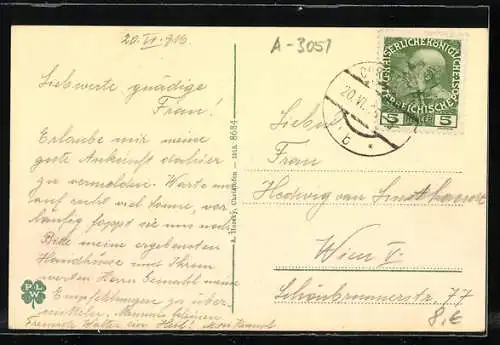 20. VI. 916
A-3051
Liebwerte, gnädige
Frau!
Erlaube mir meine
gute Ankunft dahier
zu vermelden. Warte nur
auf recht viel Sonne, vor-
läufig foppt sie uns noch.
Bitte meine ergebensten
Handküsse und Ihrem
werten Herrn Gemahl meine
Empfehlungen zu über-
mitteln.
A. Horsky, Chrysofen — 1913. 8684
PLW
KAISERLICHE KÖNIGLICHE
ÖSTERREICHISCHE
5 5
20. VI.
6
Lieber
Frau
Hedwig van
Wien V.
Schönbrunnerstr. 77
8,€